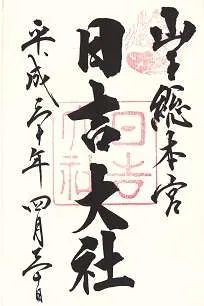 山王総本宮
日吉大社
平成三十年四月三十日
日吉大社